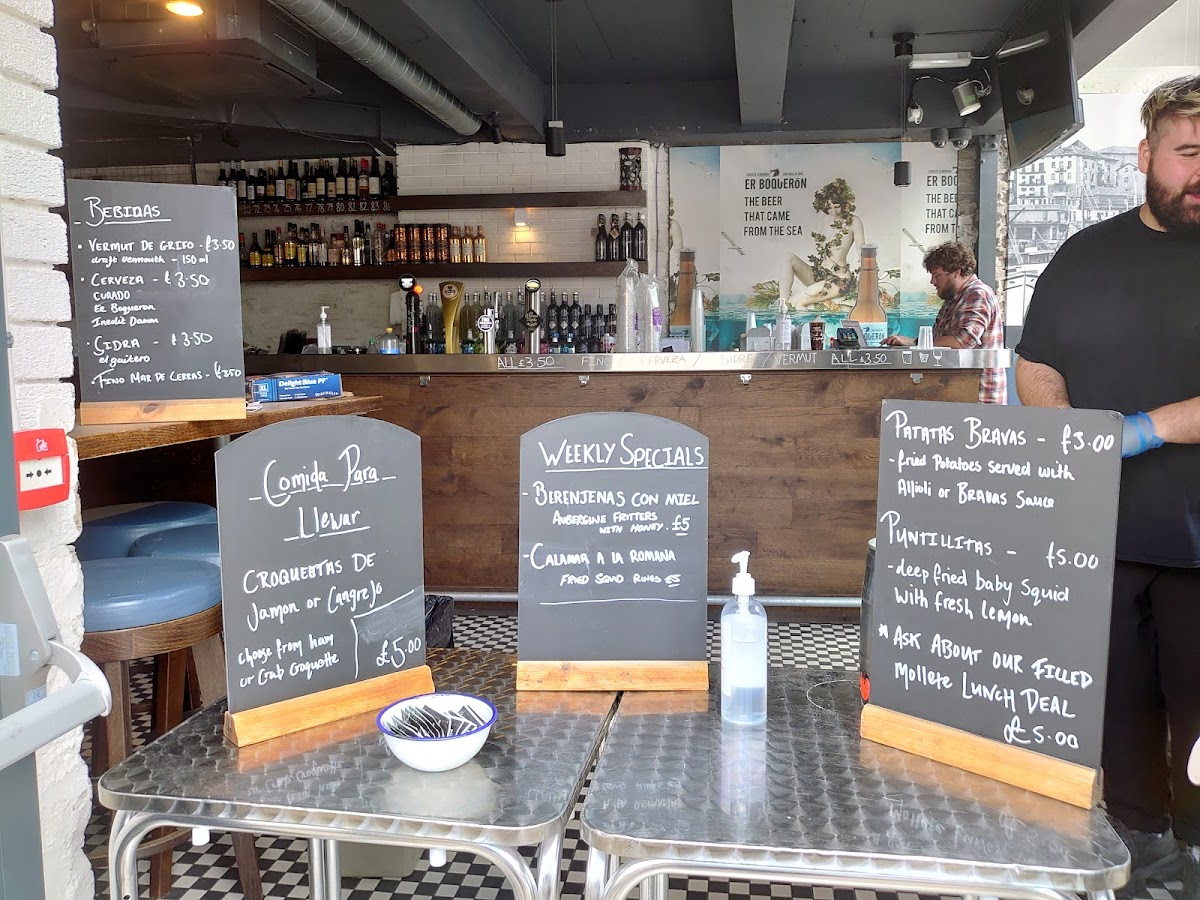 BEBIDAS
• VERMUT DE GRIFO - £3.50
draft vermouth - 150 ml
• CERVEZA - £3.50
CURADO
Er Boqueron
Inedit Damm
• SIDRA - £3.50
el gaitero
• FINO MAR DE CERRAS - £3.50
79 80 81 82
ER BOQUERÓN
THE BEER
THAT CAME
FROM THE SEA
ER BOQ
THE BE
THAT C
FROM T
ALL £3.50 FINO / CERVEZA / SIDRE / VERMUT ALL £3.50
XL
Delight Blue PF
- Comida Para -
Llevar
CROQUETAS DE
Jamon or Cangrejo
choose from ham
or Crab Croquette
£5.00
WEEKLY SPECIALS
- BERENJENAS CON MIEL
AUBERGINE FRITTERS
WITH HONEY. £5
- CALAMAR A LA ROMANA
FRIED SQUID RINGS £5
PATATAS BRAVAS - £3.00
- fried Potatoes served with
Allioli or BRAVAS Sauce
PUNTILLITAS - £5.00
- deep fried baby Squid
with fresh lemon
* ASK ABOUT OUR FILLED
Mollete LUNCH DEAL
£5.00